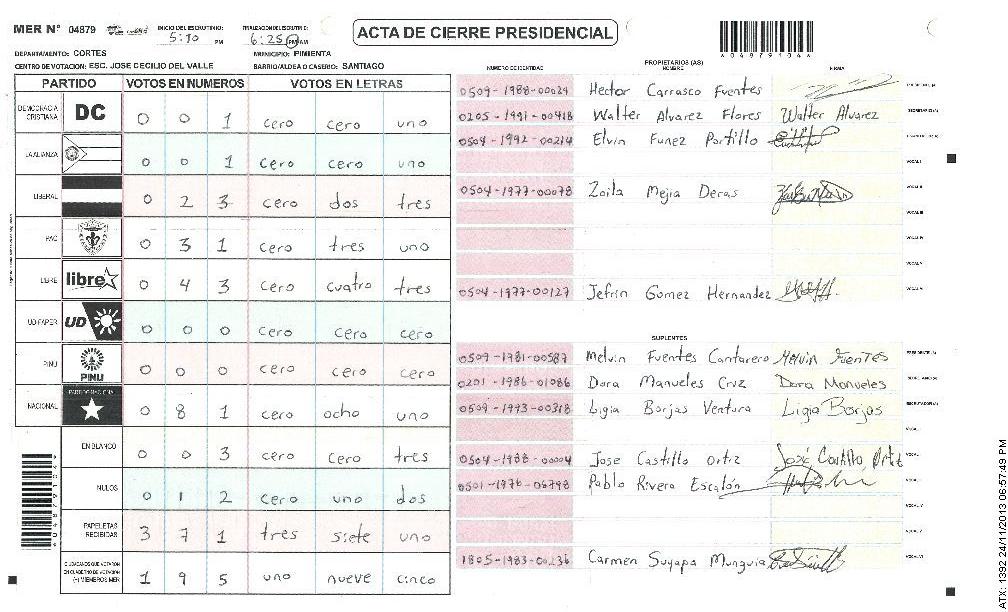 MER Nº 04879 INICIO DEL ESCRUTINIO: 5:10 PM FINALIZACION DEL ESCRUTINIO: 6:25 PM AM
ACTA DE CIERRE PRESIDENCIAL
DEPARTAMENTO: CORTES MUNICIPIO: PIMIENTA
CENTRO DE VOTACION: ESC. JOSE CECILIO DEL VALLE BARRIO/ALDEA O CASERIO: SANTIAGO
PARTIDO VOTOS EN NUMEROS VOTOS EN LETRAS
DEMOCRACIA CRISTIANA DC 0 0 1 cero cero uno
LA ALIANZA 0 0 1 cero cero uno
LIBERAL 0 2 3 cero dos tres
PAC 0 3 1 cero tres uno
LIBRE libre 0 4 3 cero cuatro tres
UD FAPER UD 0 0 0 cero cero cero
PINU PINU 0 0 0 cero cero cero
NACIONAL 0 8 1 cero ocho uno
EN BLANCO 0 0 3 cero cero tres
NULOS 0 1 2 cero uno dos
PAPELETAS RECIBIDAS 3 7 1 tres siete uno
CIUDADANOS QUE VOTARON EN CUADERNO DE VOTACION (+) MIEMBROS MER 1 9 5 uno nueve cinco
NUMERO DE IDENTIDAD PROPIETARIOS (AS) NOMBRE FIRMA
0509-1988-00024 Hector Carrasco Fuentes PRESIDENTE (A)
0205-1991-00418 Walter Alvarez Flores Walter Alvarez SECRETARIO (A)
0504-1992-00214 Elvin Funez Portillo
VOCAL I
0504-1977-00078 Zoila Mejia Deras VOCAL II
VOCAL III
VOCAL IV
VOCAL V
0504-1977-00127 Jefrin Gomez Hernandez
SUPLENTES
0509-1981-00587 Melvin Fuentes Cantarero Melvin Fuentes PRESIDENTE (A)
0201-1986-01086 Dora Manueles Cruz Dora Manueles SECRETARIO (A)
0509-1993-00318 Ligia Borjas Ventura Ligia Borjas ESCRUTADOR (A)
0504-1988-00004 Jose Castillo Ortiz José Castillo Ortiz
0501-1976-06798 Pablo Rivera Escalón
1805-1983-00236 Carmen Suyapa Munguia
ATX: 1392 24/11/2013 06:57:49 PM